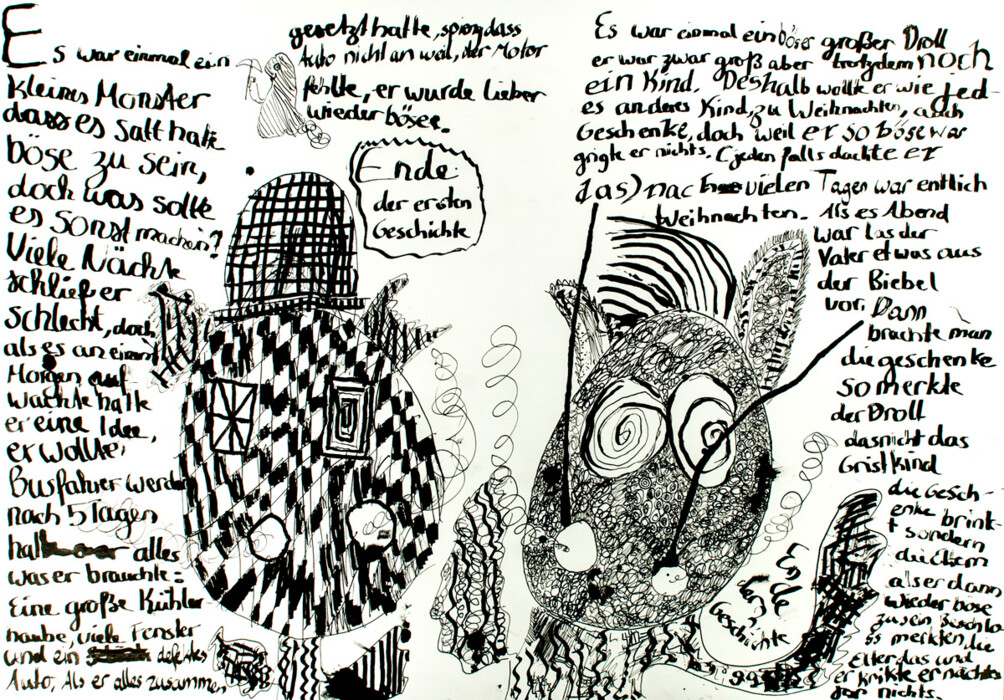 Es war einmal ein
kleines Monster
dass es satt hatte
böse zu sein,
doch was sollte
es sonst machen?
Viele Nächte
schlief er
schlecht, doch
als es an einem
Morgen auf
wachte hatte
er eine Idee,
er wollte
Busfahrer werden
nach 5 Tagen
hatte er alles
was er brauchte:
Eine große Kühler
haube, viele Fenster
und ein defektes
Auto, Als er alles zusammen
gesetzt hatte, sprang dass
Auto nicht an weil, der Motor
fehlte, er wurde lieber
wieder böse.
Ende
der ersten
Geschichte
Es war einmal ein böser großer Droll
er war zwar groß aber trotzdem noch
ein Kind. Deshalb wollte er wie jed-
es anderes Kind, zu Weihnachten, auch
Geschenke, doch weil er so böse war
grigte er nichts. (jeden falls dachte er
das) nac vielen Tagen war entlich
Weihnachten. Als es Abend
war las der
Vater etwas aus
der Biebel
vor. Dann
brachte man
die geschenke
so merkte
der Droll
das nicht das
Cristkind
die Gesch-
enke brink-
t sondern
die Eltern
als er dann
wieder böse
zu sein
Es merkten, die
Elter das und
er krikte er nächstes
Jar nichts
Ende
der
Geschichte